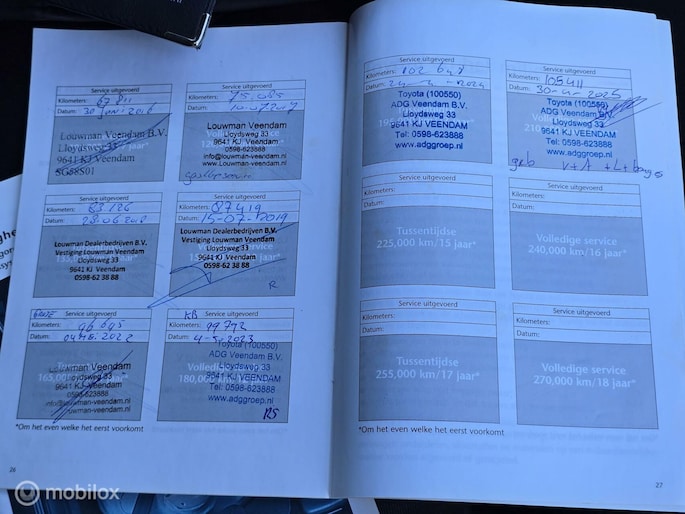 Service uitgevoerd
Kilometers: 67 811
Datum: 30 juni 2016
Louwman Veendam B.V.
Lloydsweg 33
9641 KJ Veendam
SG58S01
Service uitgevoerd
Kilometers: 75.085
Datum: 10-07-2017
Louwman Veendam
Lloydsweg 33
9641 KJ VEENDAM
0598-623888
info@louwman-veendam.nl
www.Louwman-veendam.nl
Service uitgevoerd
Kilometers:
Datum:
Louwman Dealerbedrijven B.V.
Vestiging Louwman Veendam
Lloydsweg 33
9641 KJ Veendam
0598-62 38 88
Service uitgevoerd
Kilometers: 87419
Datum: 15-07-2019
Louwman Dealerbedrijven B.V.
Vestiging Louwman Veendam
Lloydsweg 33
9641 KJ Veendam
0598-62 38 88
R
Service uitgevoerd
Kilometers: 96 695
Datum:
Louwman Veendam
Lloydsweg 33
9641 KJ VEENDAM
0598-623888
165,000
KB
Service uitgevoerd
Kilometers: 99772
Datum:
Toyota (100550)
ADG Veendam B.V.
Lloydsweg 33
9641 KJ VEENDAM
Tel: 0598-623888
www.adggroep.nl
180,000
RS
*Om het even welke het eerst voorkomt
26
Service uitgevoerd
Kilometers: 102 648
Datum:
Toyota (100550)
ADG Veendam B.V.
Lloydsweg 33
9641 KJ VEENDAM
Tel: 0598-623888
www.adggroep.nl
Service uitgevoerd
Kilometers: 105411
Datum:
Toyota (100550)
ADG Veendam B.V.
Lloydsweg 33
9641 KJ VEENDAM
Tel: 0598-623888
www.adggroep.nl
V+A +L+
Service uitgevoerd
Kilometers:
Datum:
Tussentijdse
225,000 km/15 jaar*
Service uitgevoerd
Kilometers:
Datum:
Volledige service
240,000 km/16 jaar*
Service uitgevoerd
Kilometers:
Datum:
Tussentijdse
255,000 km/17 jaar*
Service uitgevoerd
Kilometers:
Datum:
Volledige service
270,000 km/18 jaar*
*Om het even welke het eerst voorkomt
27
mobilox